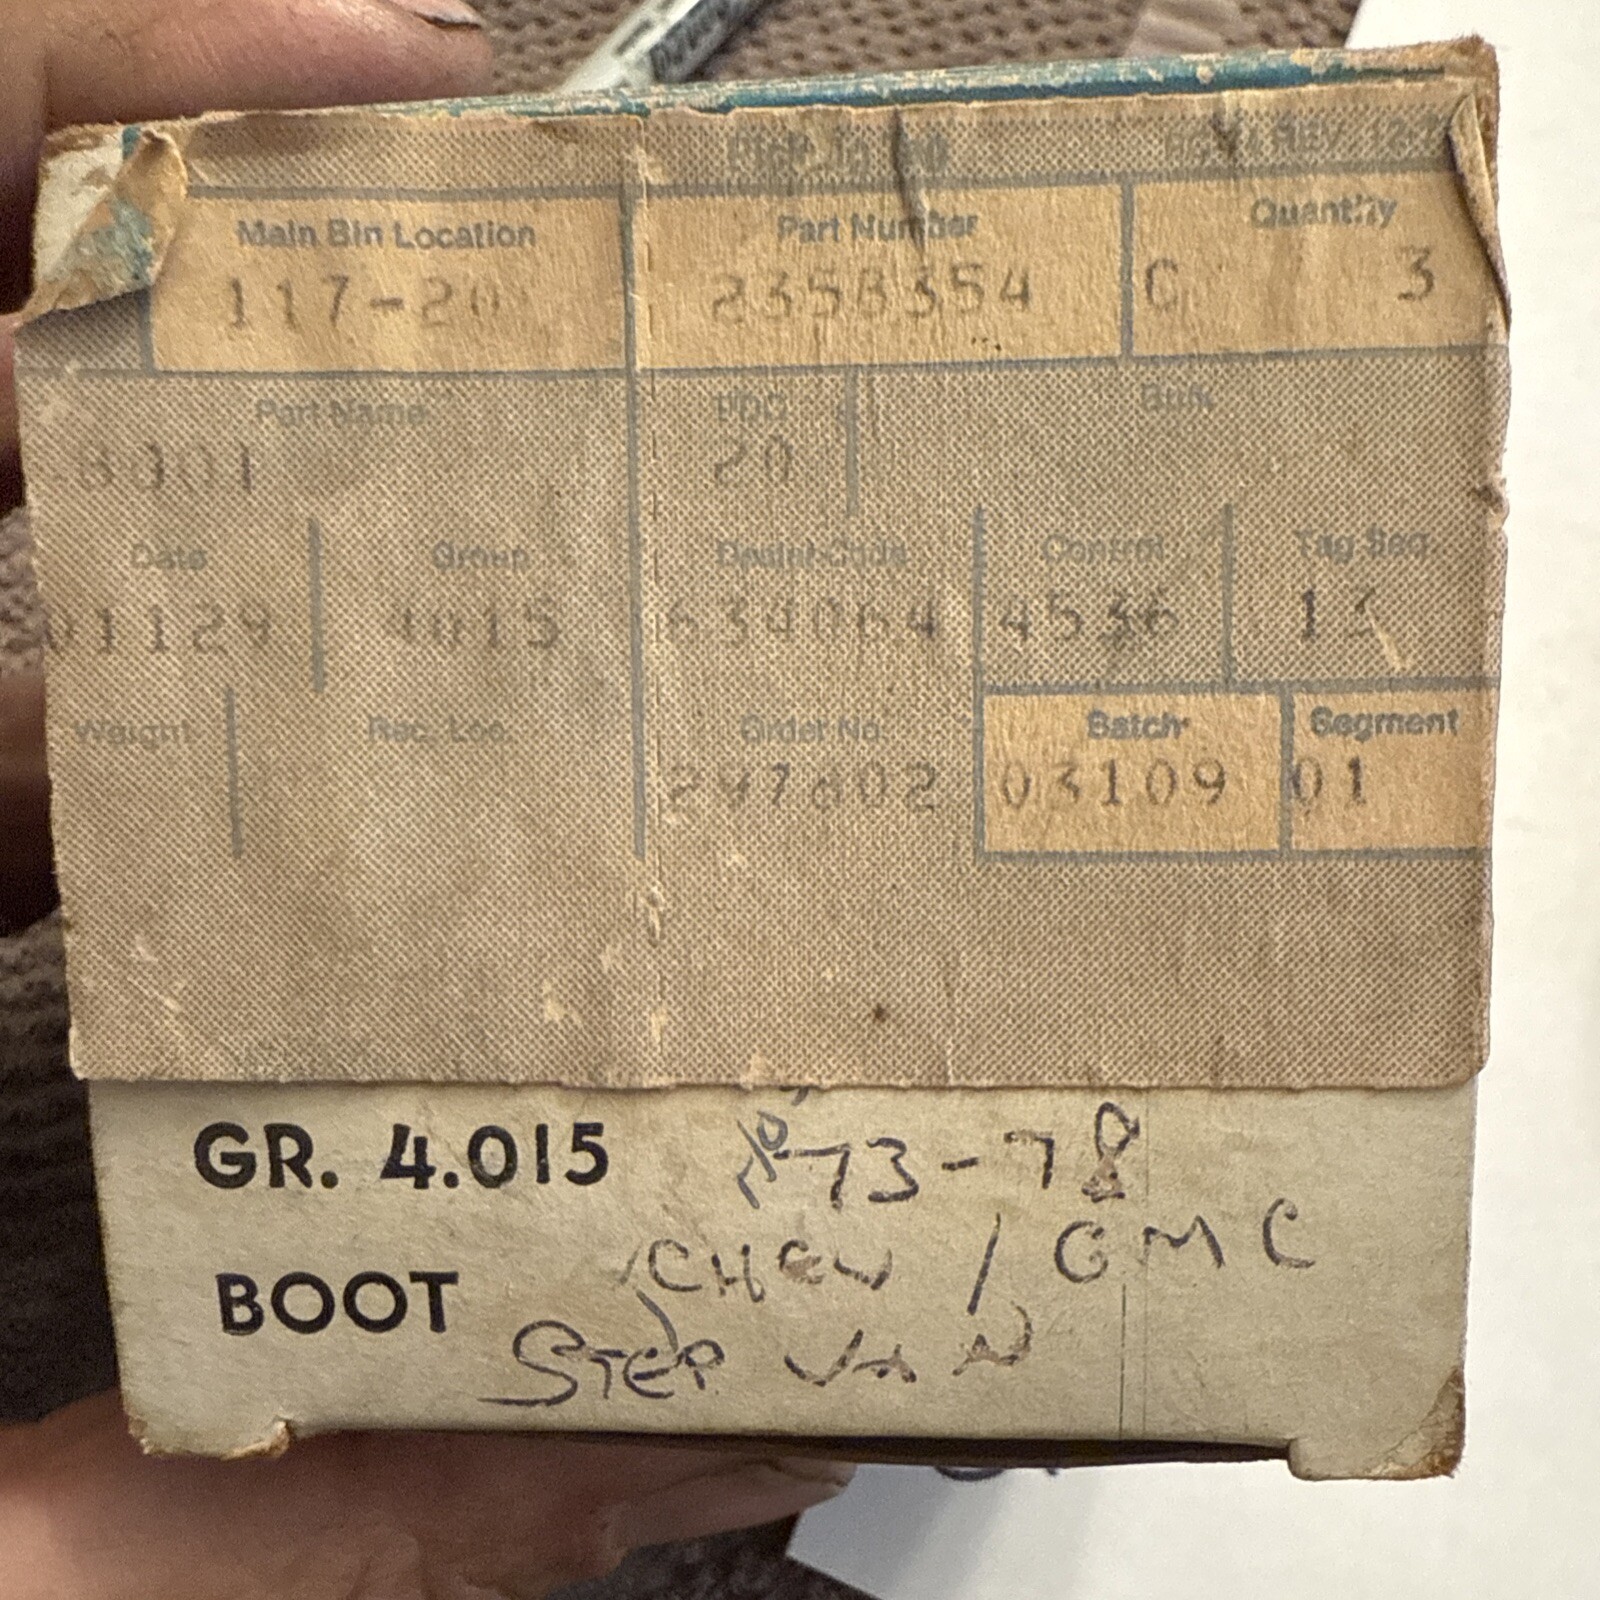 Main Bin Location Part Number Quantity
117-20 2358354 C 3
Part Name PDC Bulk
20
Date Group Dealer Code Control Tag Seq.
01129 4015 634064 4536 13
Weight Rec. Loc. Order No. Batch Segment
03109 01
GR. 4.015 73-78
CHEV / GMC
BOOT
STEP VAN